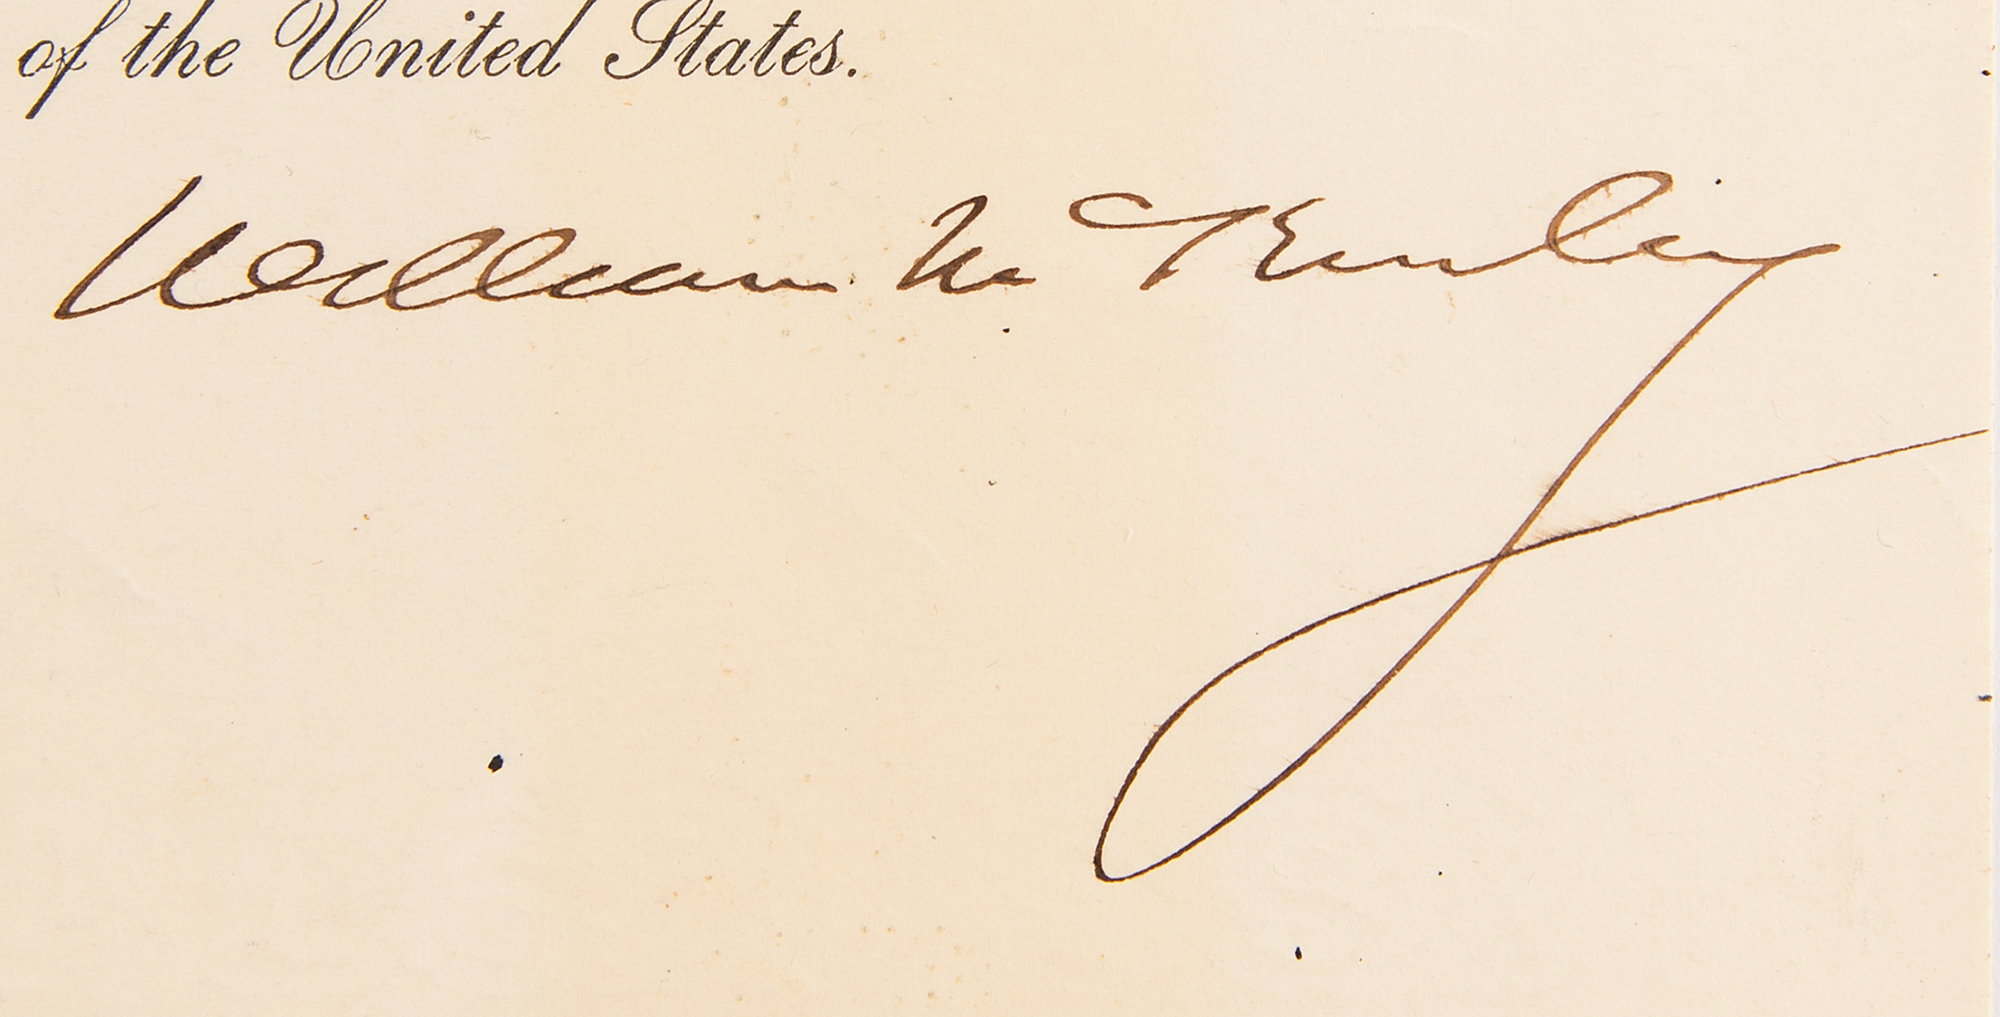 of the United States.
William McKinley